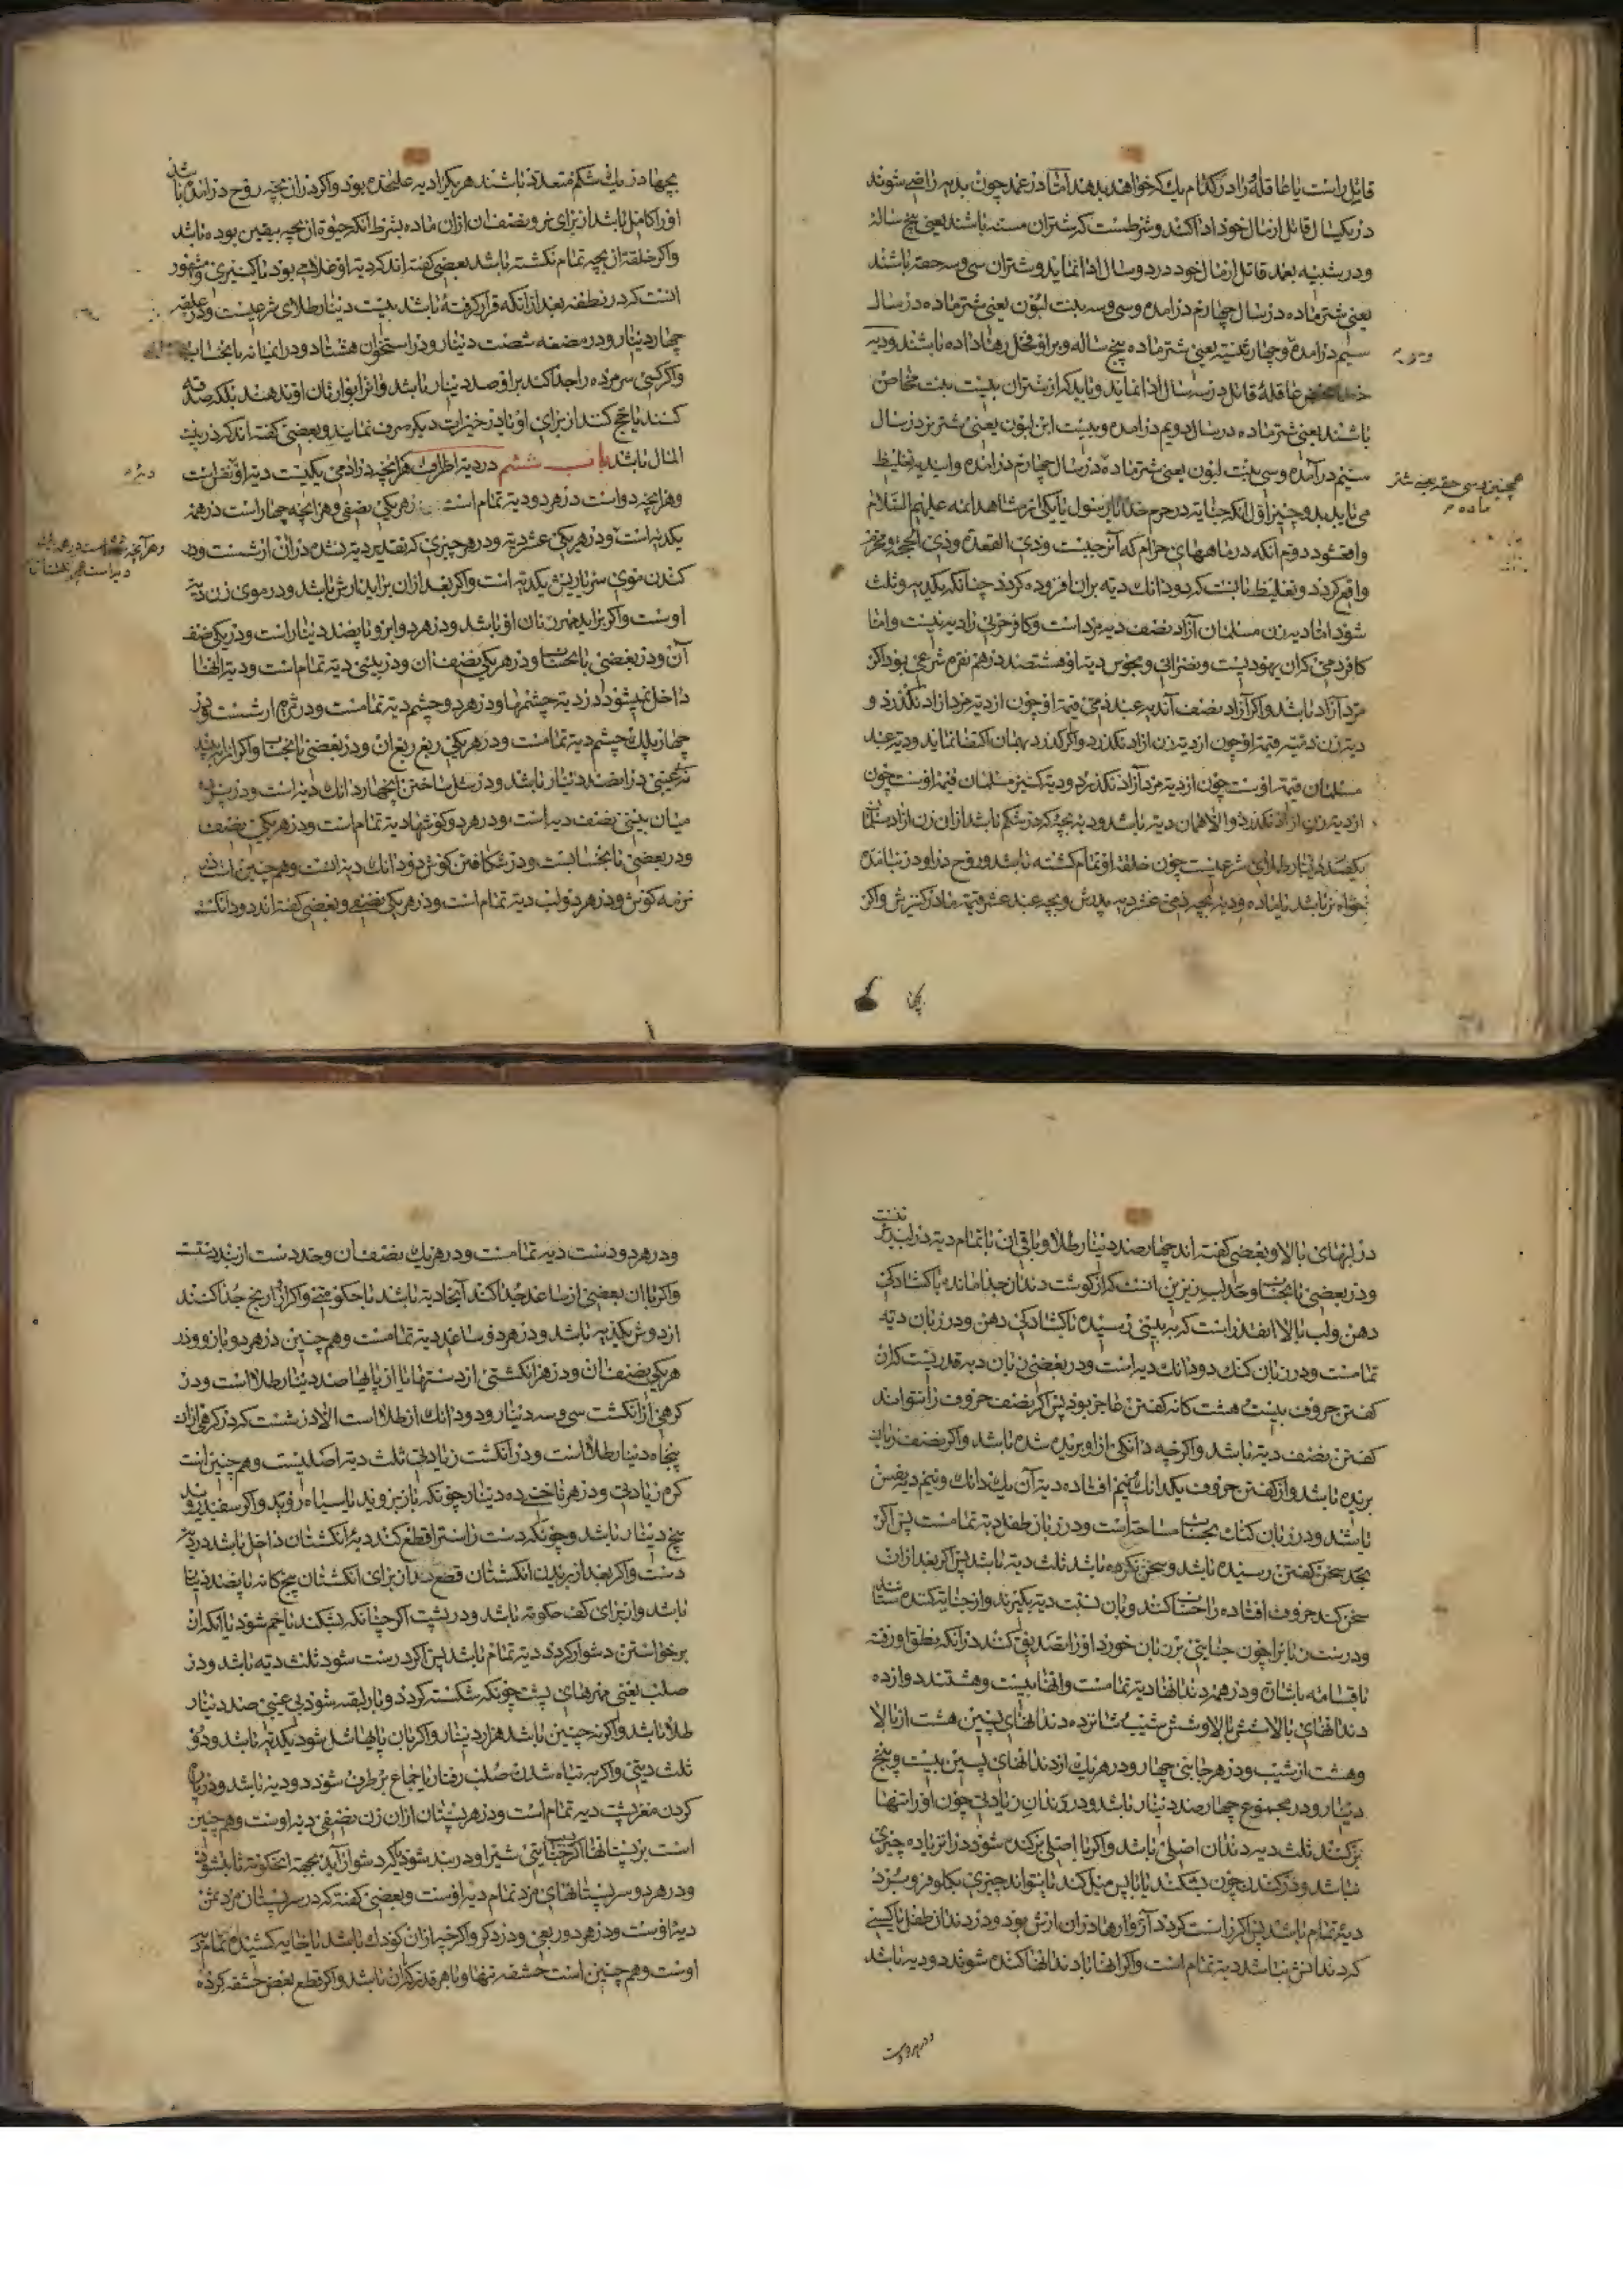 قاتل راست یا عاقله را در کدام یک که خواهند بدهند امّا در عمد چون بدیه راضی شوند
در یکسال قاتل از مال خود ادا کند و شرطست که شتران مسنه باشند یعنی پنج ساله
و در شبیه بعمد قاتل از مال خود در دو سال ادا نماید و شتران سی و سه حقه باشند
یعنی شتر ماده در سال چهارم درامده و سی و سه بنت لبون یعنی شتر ماده در سال
سیم درامده و چهار ثنیه یعنی شتر ماده پنج ساله و بر او فحل رها داده باشند و دیه
عاقلهٔ قاتل در سه سال ادا نماید و باید که از شتران بیست بنت مخاض
باشند یعنی شتر ماده در سال دویم درامده و بیست ابن لبون یعنی شتر نر در سال
سیم درآمده و سی بنت لبون یعنی شتر ماده در سال چهارم درامده و این دیه تغلیظ
می یابد بدو چیز اوّل انکه جنایه در حرم خدا یا رسول یا یکی از مشاهد ائمه علیهم السّلام
واقع شود دوّم انکه در ماههای حرام که آن رجبست و ذی القعده و ذی الحجه و محرّم
واقع کردد و تغلیظ ثابتست که دو دانک دیه بران افزوده کردد چنانکه یکدیه و ثلث
شود امّا دیه زن مسلمان آزاد نصف دیه مرد است و کافر حربی را دیه نیست و امّا
کافر ذمی که ان یهودیست و نصرانی و مجوس دیه او هشتصد درهم نقره شرعی بود اکر
مرد آزاد باشد و اکر آزاد نصف آن دیه عبد ذمی قیمة او چون از دیه مرد ازاد نکذرد و
دیه زن ذمیّه قیمة او چون از دیه زن ازاد نکذرد و اکر کذرد بهمان اکتفا نماید و دیه عبد
مسلمان قیمة اوست چون از دیه مرد آزاد نکذرد و دیه کنیز مسلمان قیمة اوست چون
از دیه زن ازاد نکذرد و الا همان دیه باشد و دیه بچه که در شکم باشد از ان زن ازاد مسلمان
یکصد دینار طلای شرعیست چون خلقة او تمام کشته باشد و روح در او در نیامده
خواه نر باشد یا ماده و دیه بچه ذمی عشر دیه پدرش و بچه عبد عشر قیمة مادر کنیزش و اکر
همچنین و سی حقه یعنی شتر
ماده
بچها
بچها در یک شکم متعدّد باشند هر یک را دیه علیحده بود و اکر در ان بچه روح درامده باشد
او را کامل باشد از برای نر و نصف ان از ان ماده بشرط انکه حیوة ان بچه بیقین بوده باشد
و اکر خلقة ان بچه تمام نکشته باشد بعضی کفته اند که دیه او غلامی بود یا کنیزی و مشهور
انست که در نطفه بعد از انکه قرار کرفته باشد بیست دینار طلای شرعیست و در علقه
چهل دینار و در مضغه شصت دینار و در استخوان هشتاد و در میانه بحساب
و اکر کسی سر مرده را جدا کند بر او صد دینار باشد و انرا بوارثان او ندهند بلکه صدقه
کنند یا حج کنند از برای او یا در خیرات دیکر صرف نمایند و بعضی کفته اند که در بیت
المال باشد باب ششم در دیه اطراف هرانچه در ادمی یکیست دیه او نفس است
و هرانچه دو است در هر دو دیه تمام است در هر یکی نصفی و هر انچه چهار است در همه
یکدیه است و در هر یکی عشر دیه و در هر چیزی که تقدیر دیه نشده در ان ارشست و در
کندن موی سر یا ریش یکدیه است و اکر بعد از ان براید ارش باشد و در موی زن دیه
اوست و اکر براید مهر زنان او باشد و در هر دو ابرو پانصد دینار است و در یکی نصف
آن و در بعضی بحساب و در هر یکی نصف ان و در بینی دیه تمام است و دیه انها
داخل نمیشود در دیه چشمها و در هر دو چشم دیه تمامست و در
چهار پلک چشم دیه تمامست و در هر یکی ربع ان و در بعضی بحساب و اکر
میان بینی نصف دیه است و در هر دو کوشها دیه تمام است و در هر یکی نصف
و در بعضی بحسابست و در شکافتن کوش دو دانک دیه است و همچنین است
نرمه کوش و در هر دو لب دیه تمام است و در هر یکی نصفی و بعضی کفته اند دو دانکست
در لبهای بالا و بعضی کفته اند چهار صد دینار طلا و باقی ان تا تمام دیه در لب زیر
و در بعضی بحساب و حدّ لب زیرین انست که از کوشت دندان جدا مانده با کشادکی
دهن و لب بالا انقدر است که به بینی رسیده با کشادکی دهن و در زبان دیه
تمامست و در زبان کنک دو دانک دیه است و در بعضی زبان دیه بقدریست که از ان
کفتن حروف بیست و هشت کانه کفتن عاجز بود پس اکر نصف حروف را نتواند
کفتن نصف دیه باشد و اکر چه دانکی از او بریده شده باشد و اکر نصف زبان
بریده باشد و از کفتن حروف یکدانک و نیم افتاده دیه آن یک دانک و نیم دیه نفس
باشد و در زبان کنک بحساب مساحتست و در زبان طفل دیه تمامست پس اکر
بحد سخن کفتن رسیده باشد و سخن نکرده باشد ثلث دیه باشد پس اکر بعد از ان
سخن کند حروف افتاده را حساب کنند و بان نسبت دیه بکیرند و از جنایت کننده ستانند
و درست زبانرا چون جنایتی بر زبان خورد او را تصدیق کنند در آنکه نطق او رفته
با قسامه باشان و در همه دندانها دیه تمامست و انها بیست و هشتند دوازده
دندانهای بالا شش بالا و شش شیب شانزده دندانهای پسین هشت از بالا
و هشت از شیب و در هر جانبی چهار و در هر یک از دندانهای پسین بیست و پنج
دینار و در مجموع چهار صد دینار باشد و در دندان زیادتی چون او را تنها
برکنند ثلث دیه دندان اصلی باشد و اکر با اصلی برکنده شود در ان زیاده چیزی
نباشد و در کندن چون بشکند تا با پس میل کند یا نتواند چیزی بکلو فرو برد
دیهٔ تمام باشد پس اکر راست کردد و آزوارها در ان ارش بود و در دندان طفل یا کسی
که دندانش نباشد دیه تمام است و اکر انها با دندانها کنده شوند دو دیه باشد
و در هر دو دست
و در هر دو دست دیه تمامست و در هر یک نصف ان و حد دست از بند دستست
و اکر با ان بعضی از ساعد جدا کند آنجا دیه باشد با حکومتی و اکر از ارنج جدا کنند
از دوش یکدیه باشد و در هر دو ساعد دیه تمامست و همچنین در هر دو بازو و در
هر یکی نصف ان و در هر انکشتی از دستها یا از پایها صد دینار طلاست و در
کرهی از انکشت سی و سه دینار و دو دانک از طلاست الا در شست که در کرهی از ان
پنجاه دینار طلاست و در انکشت زیادتی ثلث دیه اصلیست و همچنین است
کره زیادتی و در هر ناخنی ده دینار چونکه باز بروید یا سیاه روید و اکر سفید روید
پنج دینار باشد و چونکه دست راستر قطع کنند دیهٔ انکشتان داخل باشد در دیه
دست و اکر بعد از بریدن انکشتان قطع کند از برای انکشتان پنج کانه پانصد دینار
باشد و از برای کف حکومة باشد و در پشت اکر چنانکه بشکند یا خم شود یا انکه از
برخواستن دشوار کردد دیه تمام باشد پس اکر درست شود ثلث دیه باشد و در
صلب یعنی مهرهای پشت چونکه شکسته کردد و باز بسته شود بی عیبی صد دینار
طلا باشد و اکر نه چنین باشد هزار دینار و اکر بان پایها شل شود یکدیه باشد و دو
ثلث دیتی و اکر به تباه شدن صلب رفتار یا جماع برطرف شود دو دیه باشد و در
کردن مغز پشت دیه تمام است و در هر پستان از ان زن نصفی دیه اوست و همچنین
است بر پستانها اکر جنایتی شیر او در بند شود یا که دشوار آید بجهة ان حکومة ثابت شود
و در هر دو سر پستانهای مرد تمام دیه اوست و بعضی کفته که در سر پستان مرد ثمن
دیه اوست و در هر دو ربعی و در ذکر و اکر چه از ان کودک باشد یا خایه کشیده تمام دیه
اوست و همچنین است حشفه تنها و باهر قدر که از ان باشد و اکر قطع بعض حشفه کرده